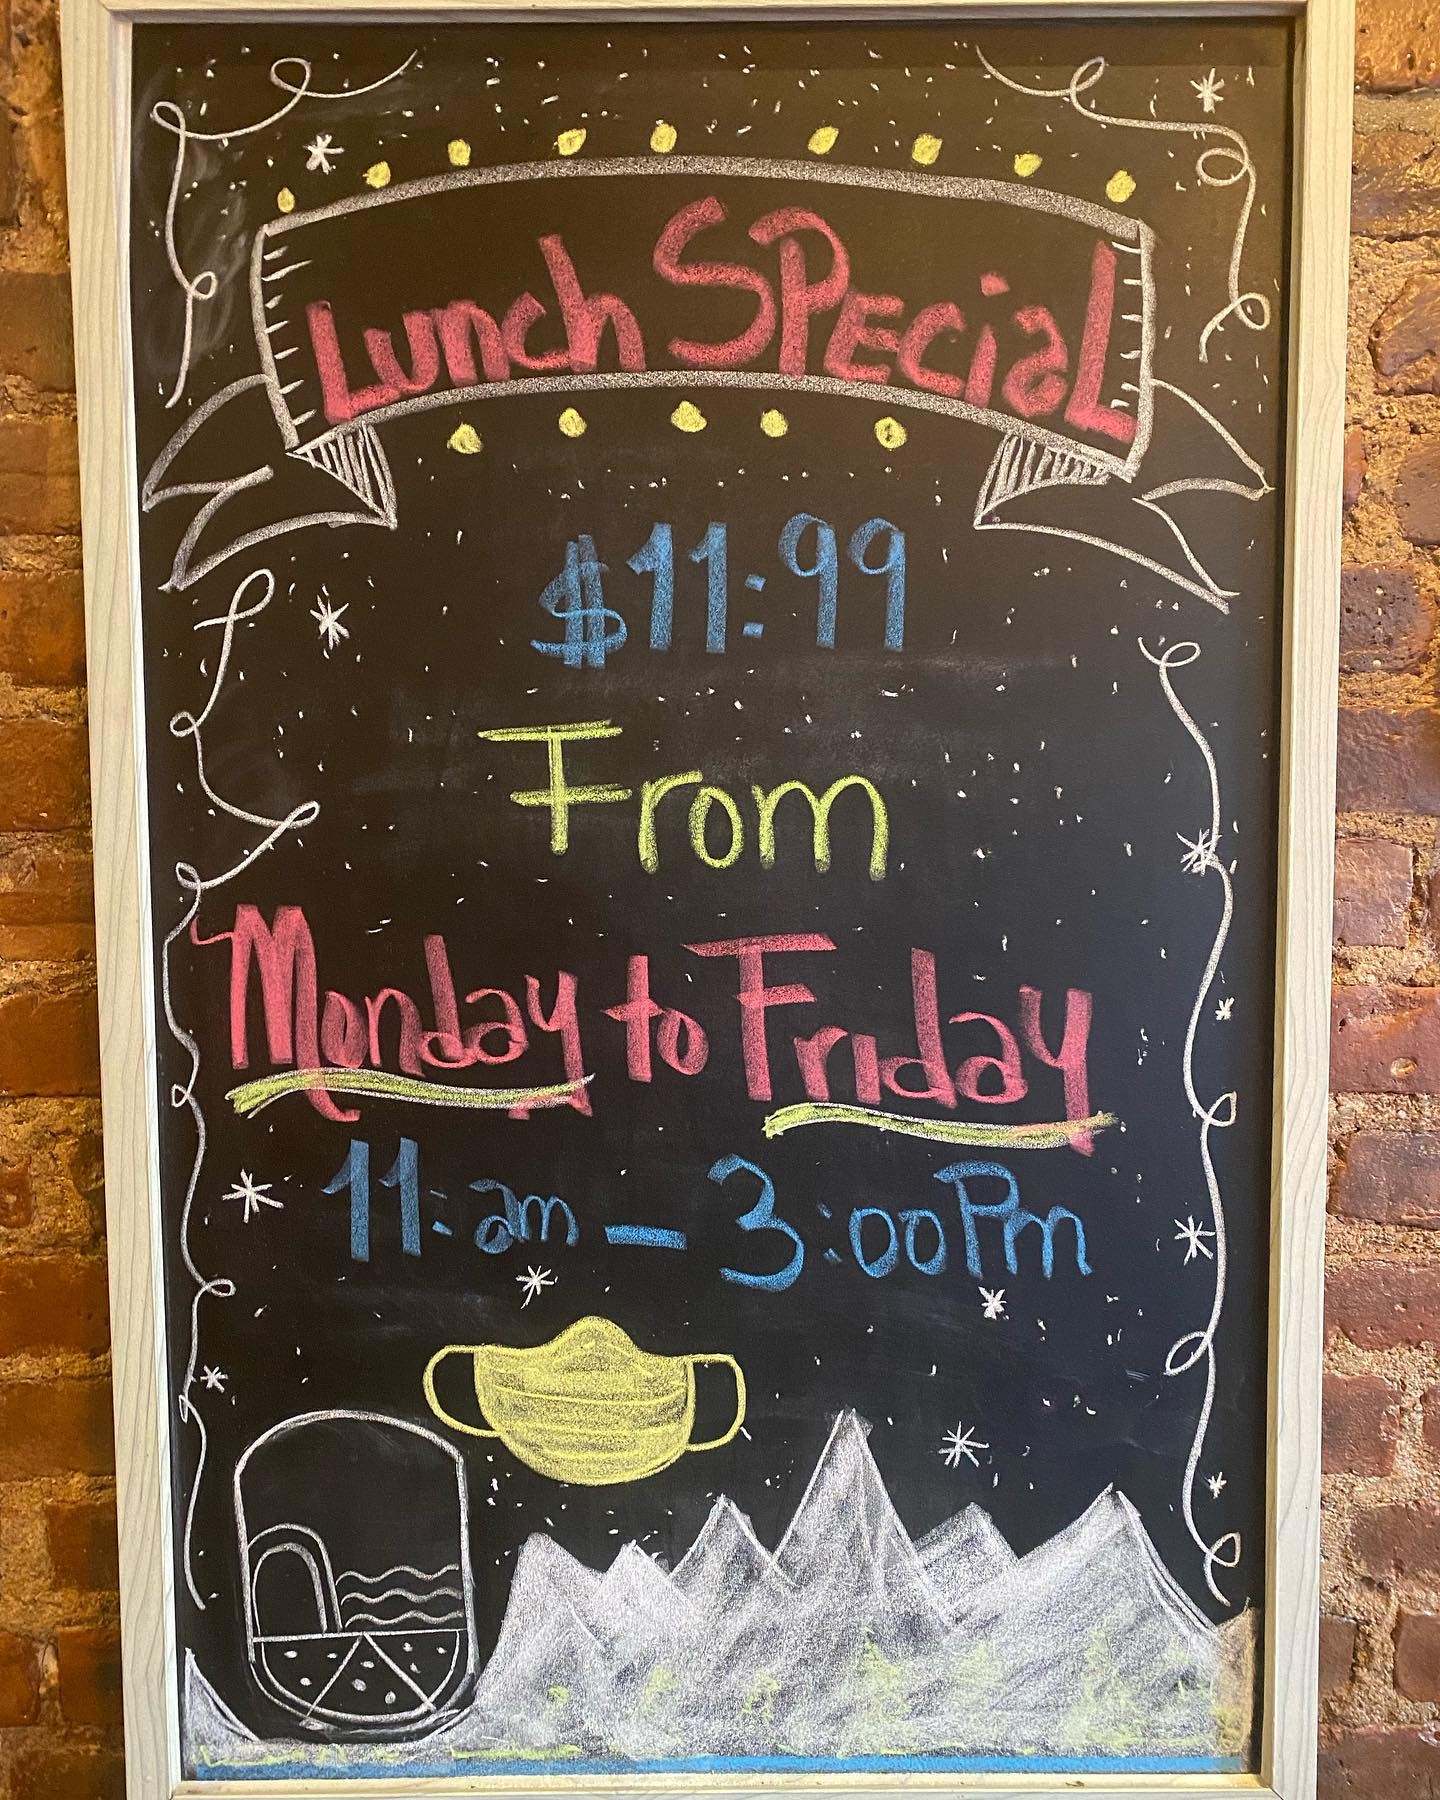 Lunch SPecial
$11:99
From
Monday to Friday
11:am - 3:00Pm